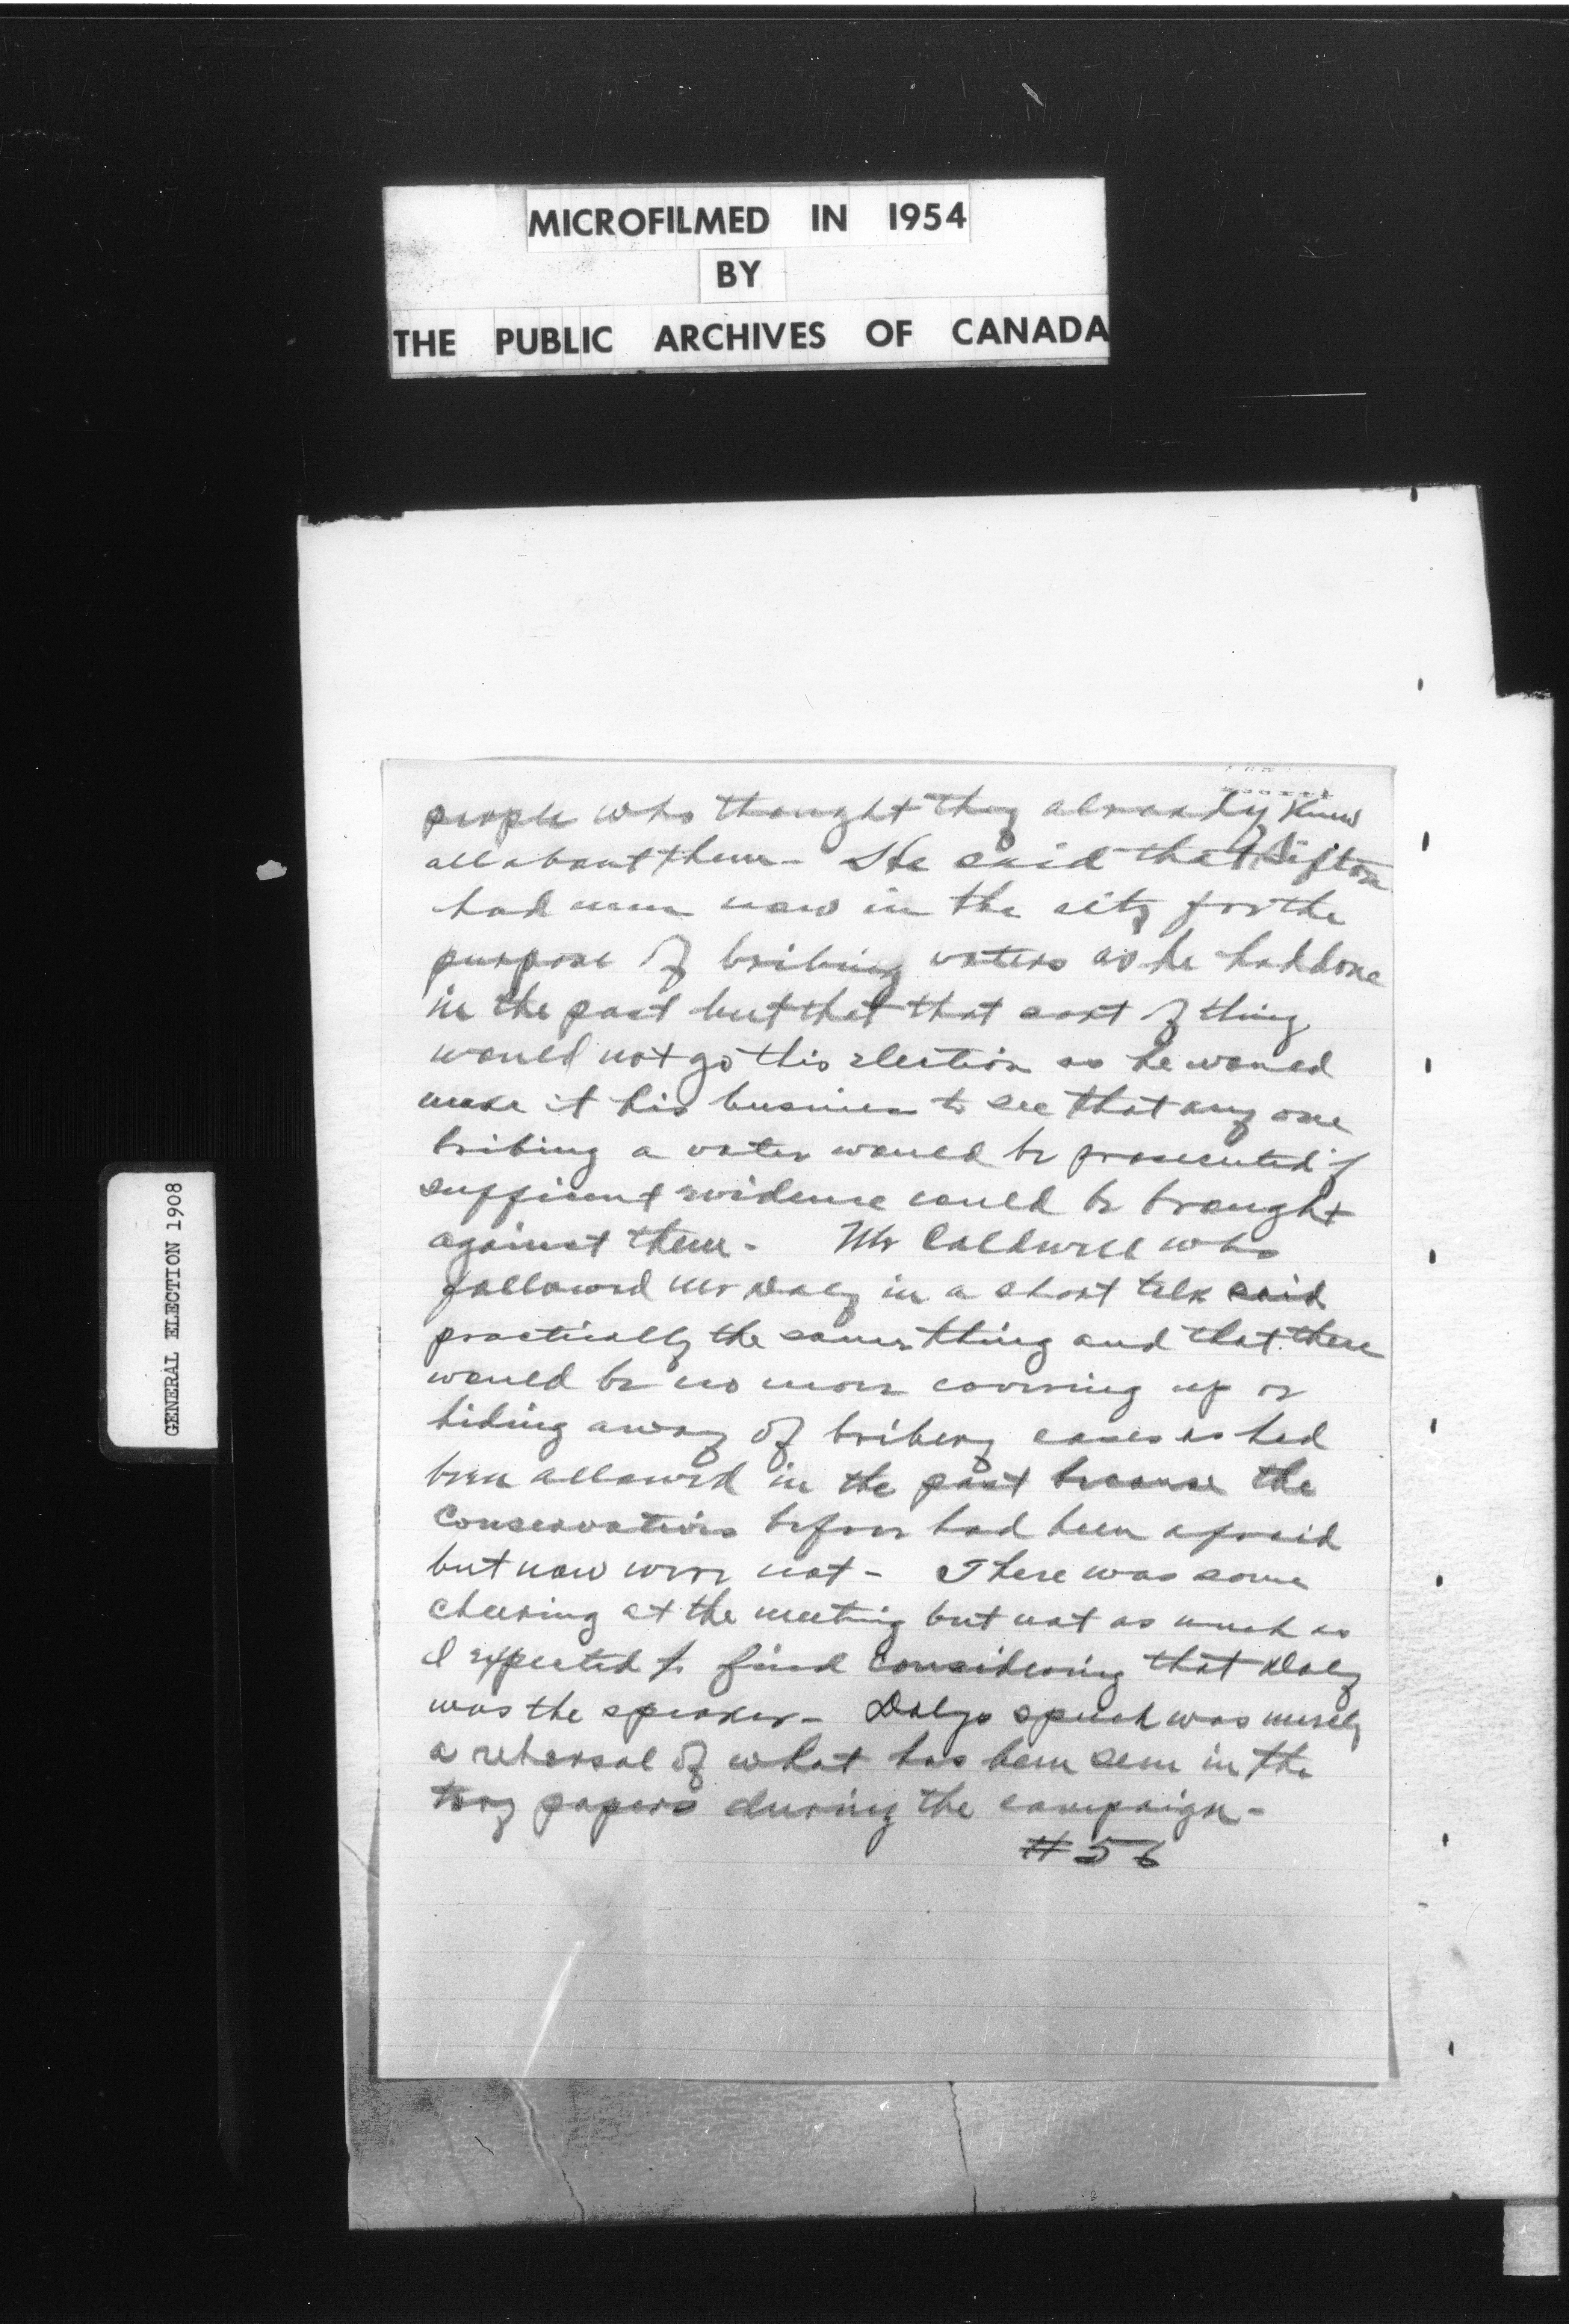 MICROFILMED IN 1954
BY
THE PUBLIC ARCHIVES OF CANADA
GENERAL ELECTION 1908
people who thought they already knew
all about them - He said that Sifton
had men now in the city for the
purpose of bribing voters as he had done
in the past but that that sort of thing
would not go this election as he would
make it his business to see that any one
bribing a voter would be prosecuted if
sufficient evidence could be brought
against them - Mr Caldwell who
followed Mr Daly in a short talk said
practically the same thing and that there
would be no more covering up or
hiding away of bribery cases as had
been allowed in the past because the
Conservatives before had been afraid
but now were not - There was some
cheering at the meeting but not as much as
I expected to find considering that Daly
was the speaker - Dalys speech was merely
a rehersal of what has been seen in the
tory papers during the campaign -
# 56